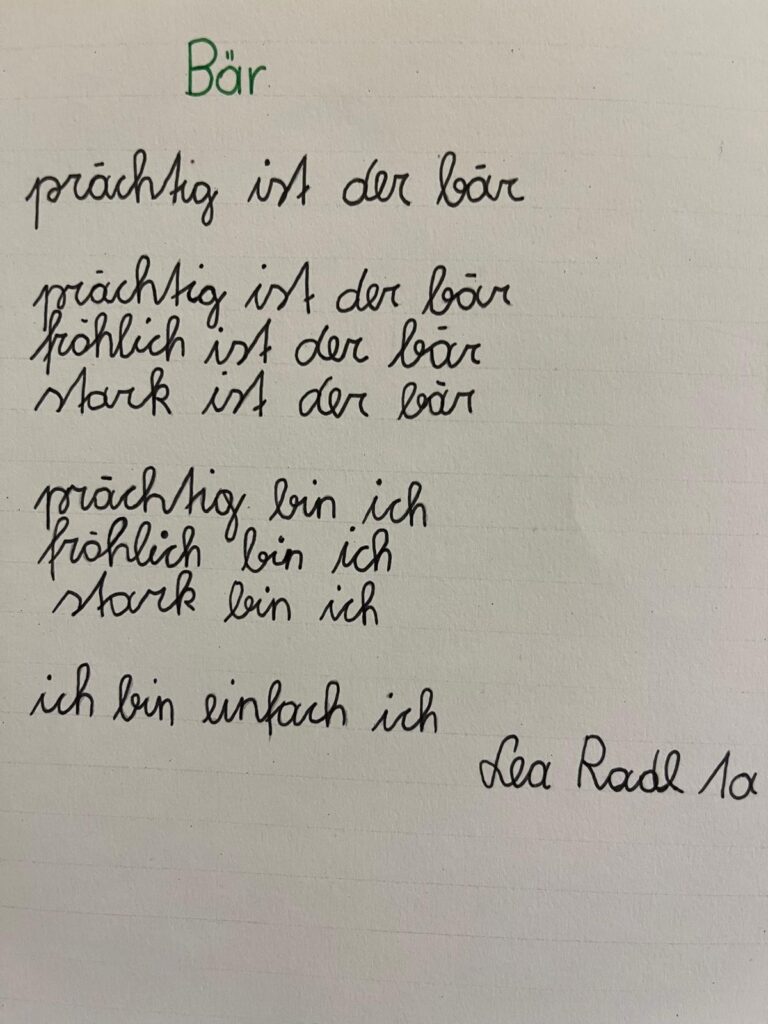 Bär
prächtig ist der bär
prächtig ist der bär
fröhlich ist der bär
stark ist der bär
prächtig bin ich
fröhlich bin ich
stark bin ich
ich bin einfach ich
Lea Radl 1a